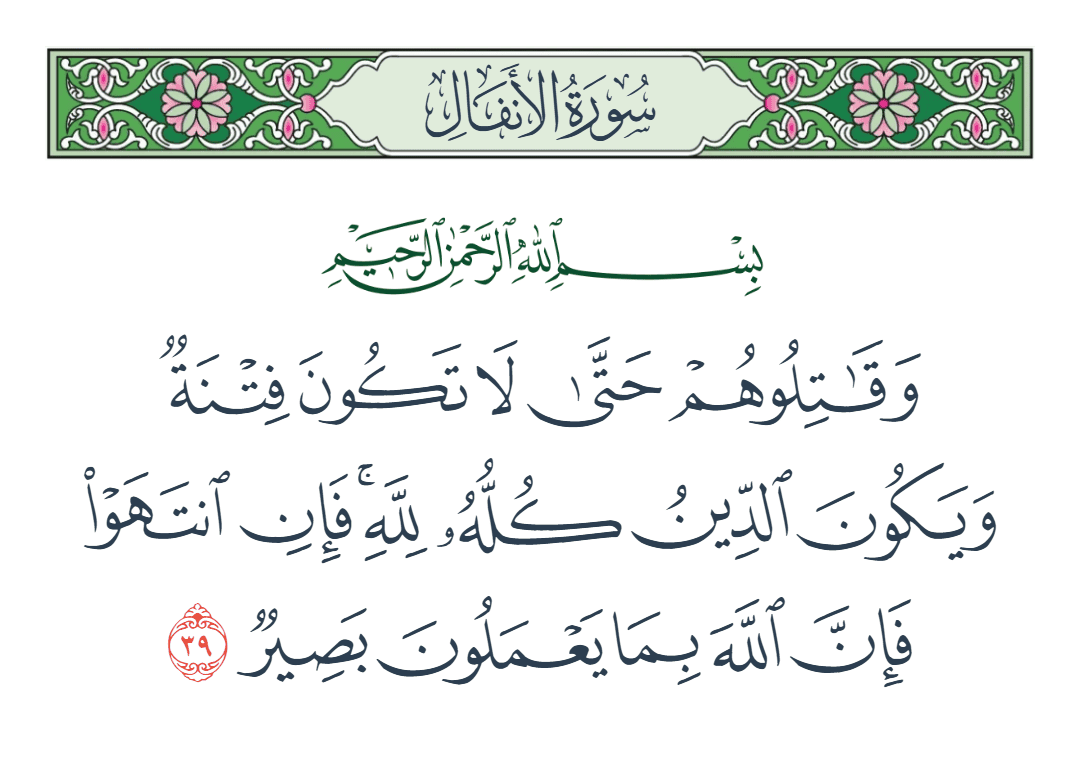 سُورَةُ الأَنفَالِ
بِسْمِ ٱللَّهِ ٱلرَّحْمَٰنِ ٱلرَّحِيمِ
وَقَـٰتِلُوهُمْ حَتَّىٰ لَا تَكُونَ فِتْنَةٌ
وَيَكُونَ ٱلدِّينُ كُلُّهُۥ لِلَّهِ ۚ فَإِنِ ٱنتَهَوْا۟
فَإِنَّ ٱللَّهَ بِمَا يَعْمَلُونَ بَصِيرٌ ٣٩